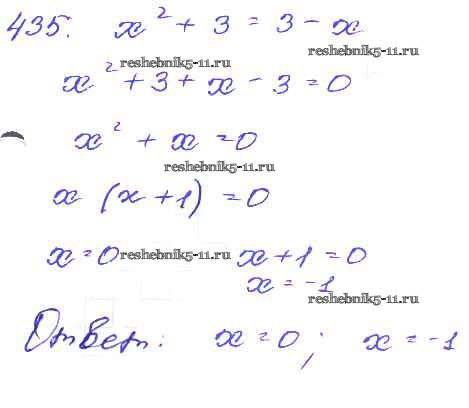 435. x² + 3 = 3 - x
reshebnik5-11.ru
reshebnik5-11.ru
x² + 3 + x - 3 = 0
x² + x = 0
reshebnik5-11.ru
x (x + 1) = 0
x = 0 reshebnik5-11.ru x + 1 = 0
x = -1
reshebnik5-11.ru
Ответ: x = 0; x = -1